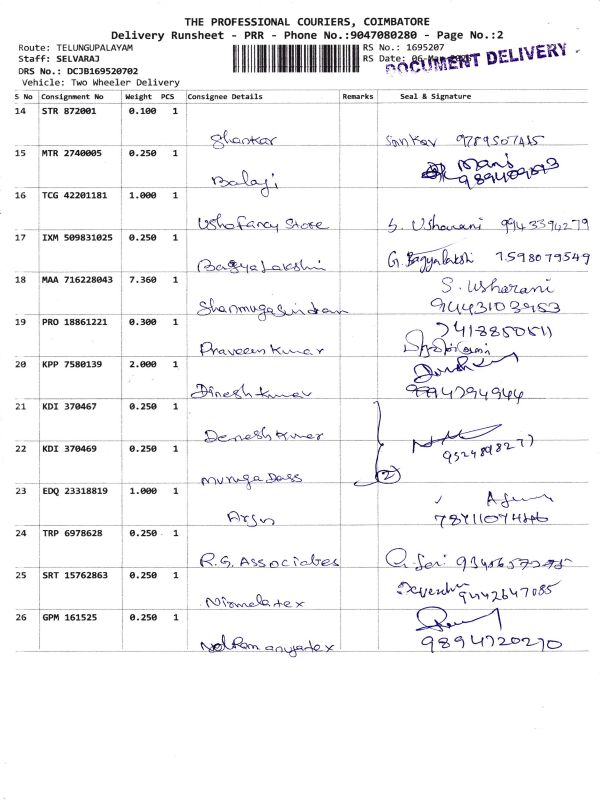 THE PROFESSIONAL COURIERS, COIMBATORE
Delivery Runsheet - PRR - Phone No.:9047080280 - Page No.:2
Route: TELUNGUPALAYAM RS No.: 1695207
Staff: SELVARAJ RS Date: 06-Mar
DOCUMENT DELIVERY
DRS No.: DCJB169520702
Vehicle: Two Wheeler Delivery
S No Consignment No Weight PCS Consignee Details Remarks Seal & Signature
14 STR 872001 0.100 1
Shankar Sankar
15 MTR 2740005 0.250 1
Balaji Mani
16 TCG 42201181 1.000 1
Usha Fancy Store S. Usharani 9943394279
17 IXM 509831025 0.250 1
Bagya Lakshmi G. Bagyalakshi 7598079549
18 MAA 716228043 7.360 1 S. Usharani
Shanmugasundram 9443103953
19 PRO 18861221 0.300 1
Praveen Kumar
20 KPP 7580139 2.000 1
Dinesh Kumar
21 KDI 370467 0.250 1
Denesh Kumar
22 KDI 370469 0.250 1
MurugaDass 2
23 EDQ 23318819 1.000 1
Arjun
24 TRP 6978628 0.250 1
R.G. Associates
25 SRT 15762863 0.250 1
Nirmala tex 9442647085
26 GPM 161525 0.250 1
9894720270